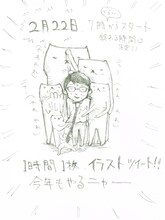 2月22日
7時からスタート
1時間1枚 イラストツイート!!
今年もやるニャー